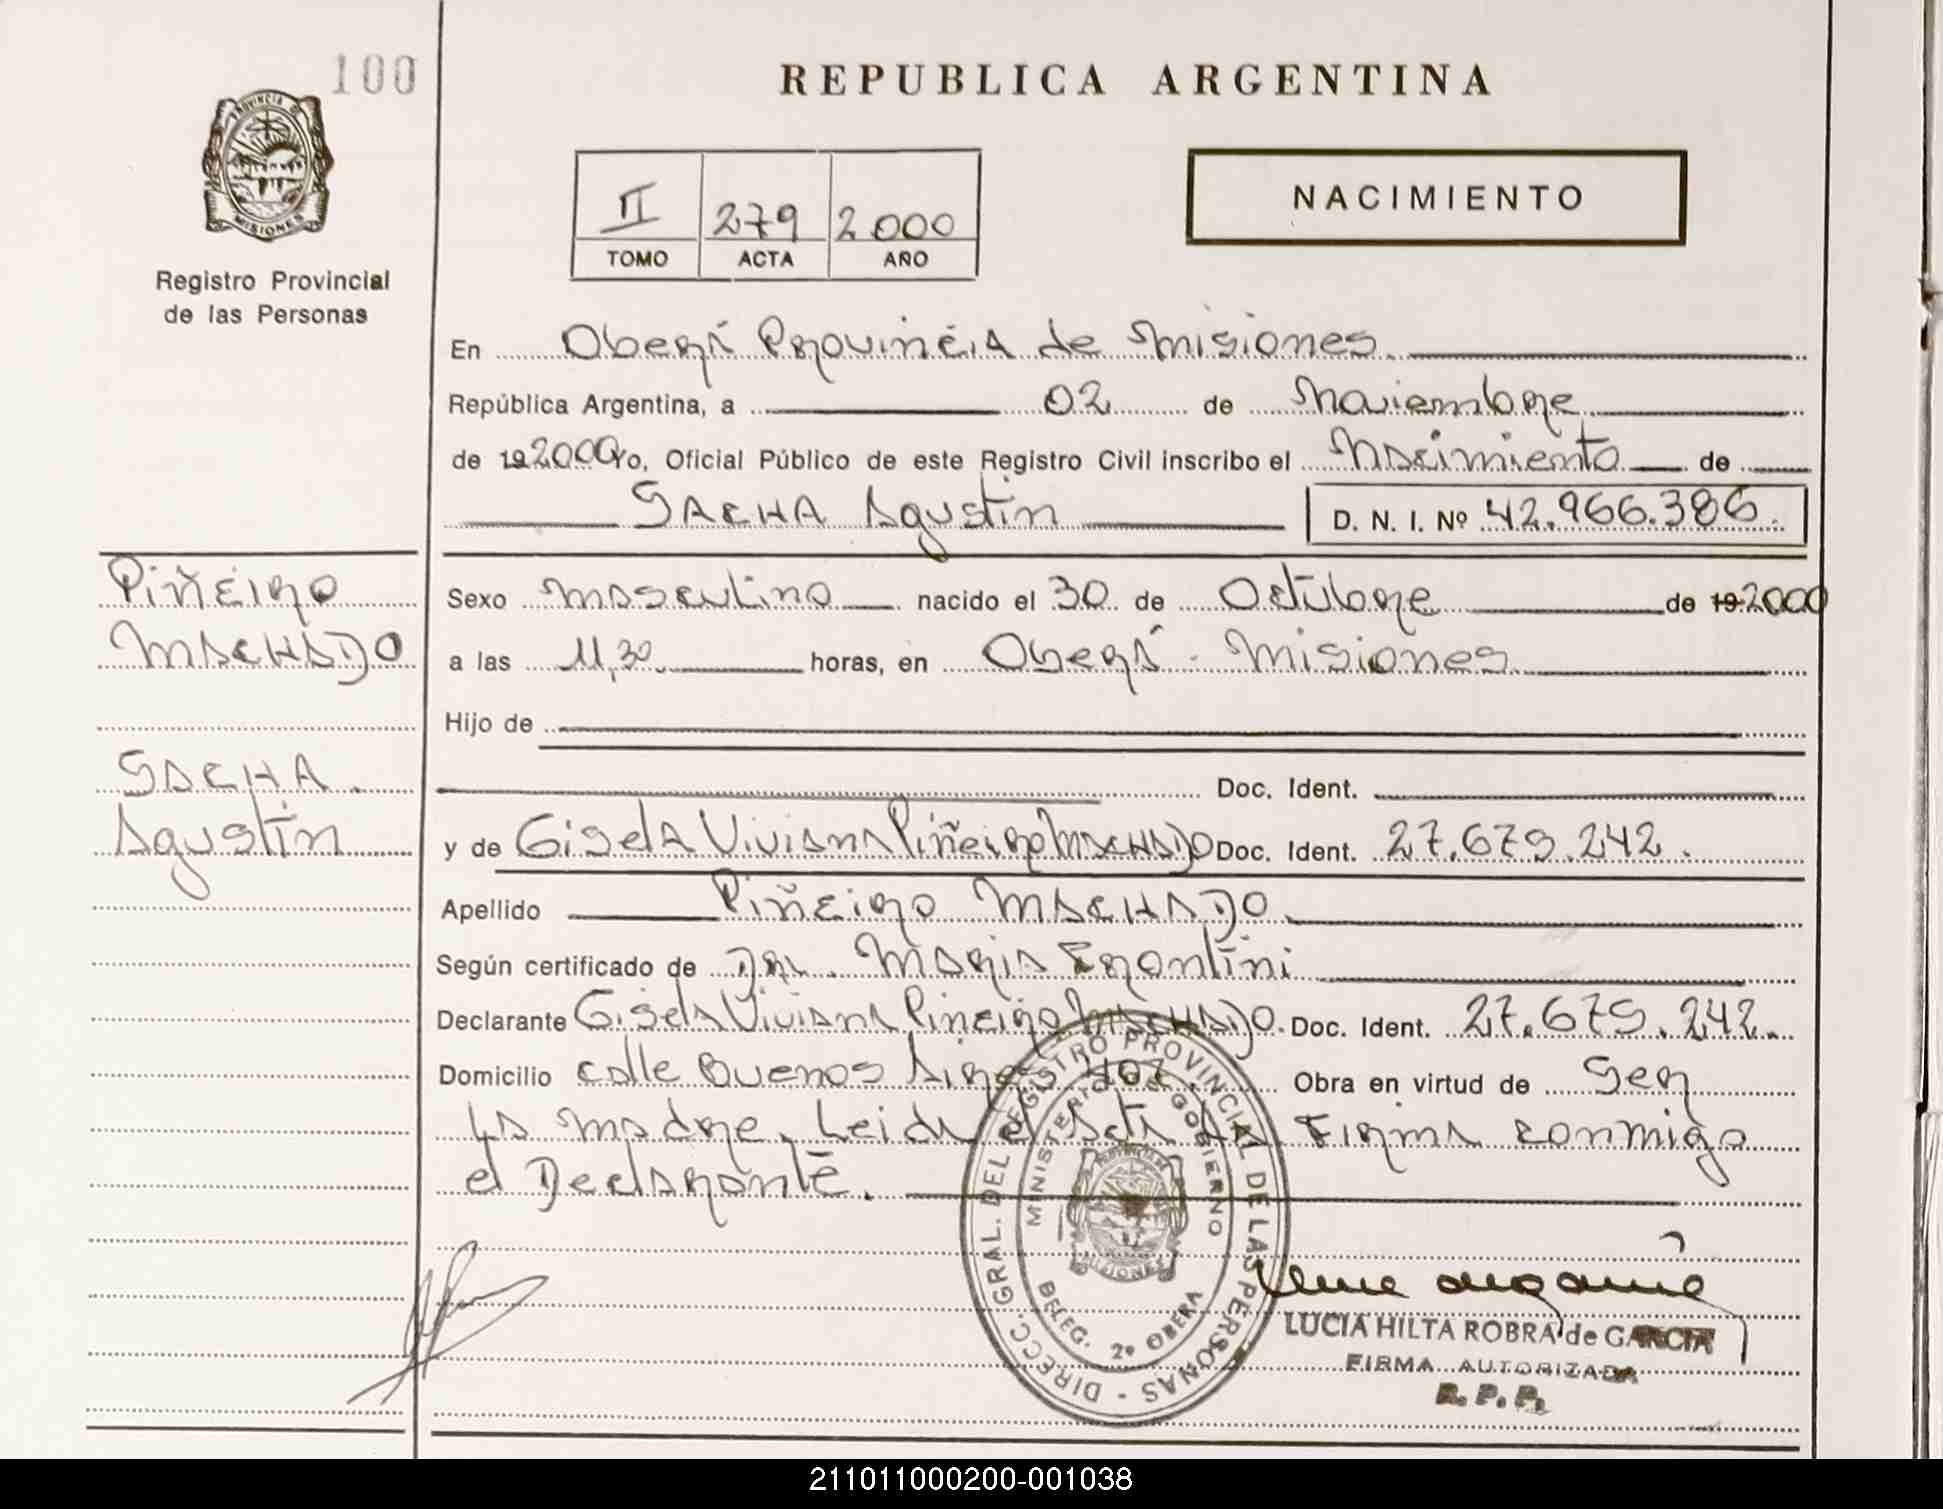 100
REPUBLICA ARGENTINA
PROVINCIA DE
MISIONES
Registro Provincial
de las Personas
II 279 2000
TOMO ACTA AÑO
NACIMIENTO
En Oberá Provincia de Misiones
República Argentina, a 02 de Noviembre
de 192000 Yo, Oficial Público de este Registro Civil inscribo el Nacimiento de
SACHA Agustín D. N. I. Nº 42.966.386
Piñeiro
MACHADO
SACHA
Agustín
Sexo Masculino nacido el 30 de Octubre de 19 2000
a las 11,30 horas, en Oberá - Misiones
Hijo de
Doc. Ident.
y de Gisela Viviana Piñeiro MACHADO Doc. Ident. 27.679.242.
Apellido Piñeiro MACHADO
Según certificado de Dra. Maria Frontini
Declarante Gisela Viviana Piñeiro MACHADO. Doc. Ident. 27.679.242.
Domicilio calle Buenos Aires 402. Obra en virtud de Ser
La madre. Leida el acta la Firma conmigo
el Declarante.
DIRECC. GRAL. DEL REGISTRO PROVINCIAL DE LAS PERSONAS -
MINISTERIO DE GOBIERNO
MISIONES
DELEG. 2º OBERA
LUCIA HILTA ROBRA de GARCIA
FIRMA AUTORIZADA
R. P. P.
211011000200-001038